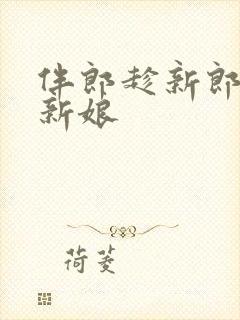 伴郎趁新郎
新娘
荷菱